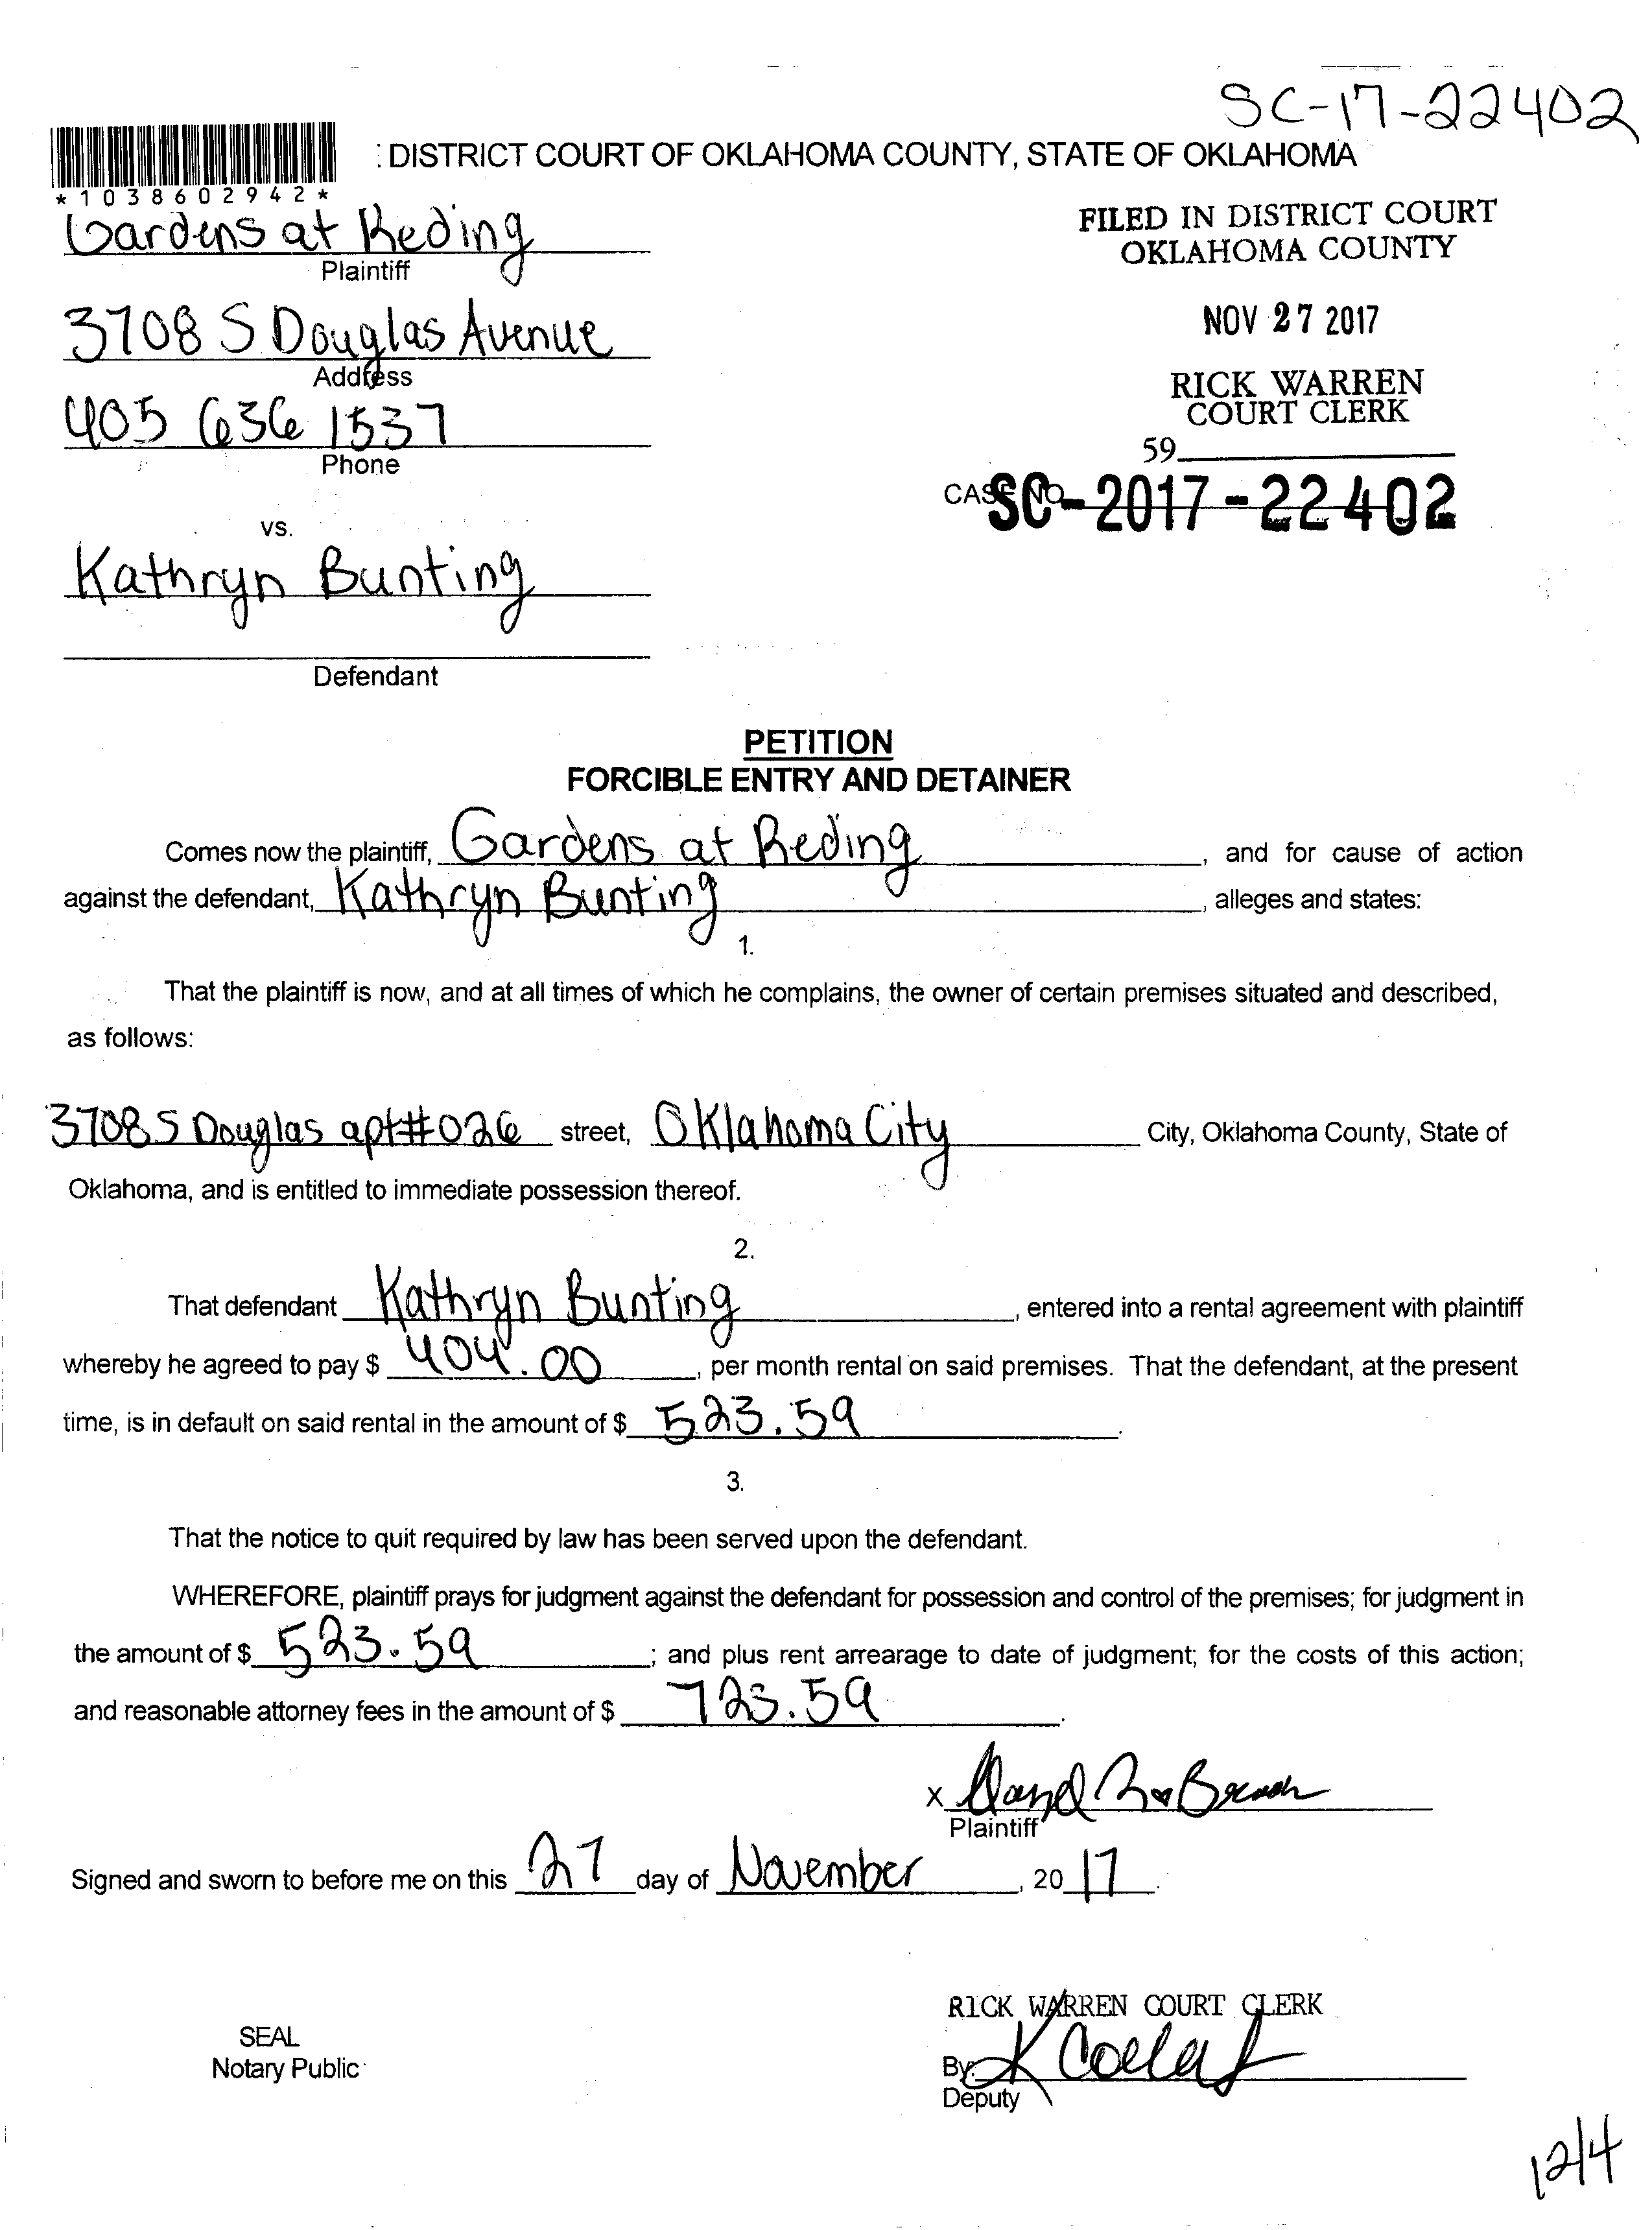 SC-17-22402
: DISTRICT COURT OF OKLAHOMA COUNTY, STATE OF OKLAHOMA
*1038602942*
Gardens at Reding
Plaintiff
3708 S Douglas Avenue
Address
405 636 1537
Phone
FILED IN DISTRICT COURT
OKLAHOMA COUNTY
NOV 27 2017
RICK WARREN
COURT CLERK
59
CASE NO. SC-2017-22402
vs.
Kathryn Bunting
Defendant
PETITION
FORCIBLE ENTRY AND DETAINER
Comes now the plaintiff, Gardens at Reding, and for cause of action
against the defendant, Kathryn Bunting, alleges and states:
1.
That the plaintiff is now, and at all times of which he complains, the owner of certain premises situated and described,
as follows:
3708 S Douglas apt#026 street, Oklahoma City City, Oklahoma County, State of
Oklahoma, and is entitled to immediate possession thereof.
2.
That defendant Kathryn Bunting, entered into a rental agreement with plaintiff
whereby he agreed to pay $ 404.00, per month rental on said premises. That the defendant, at the present
time, is in default on said rental in the amount of $ 523.59.
3.
That the notice to quit required by law has been served upon the defendant.
WHEREFORE, plaintiff prays for judgment against the defendant for possession and control of the premises; for judgment in
the amount of $ 523.59; and plus rent arrearage to date of judgment; for the costs of this action;
and reasonable attorney fees in the amount of $ 723.59.
X
Plaintiff
Signed and sworn to before me on this 27 day of November, 2017.
RICK WARREN COURT CLERK
SEAL
Notary Public
By: K
Deputy
12/4